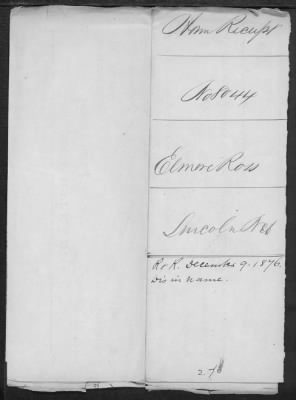 Hom Receipt
No 8044
Elmore Ross
Lincoln Neb
R & R. December 9. 1876.
Dis in name.
2.78